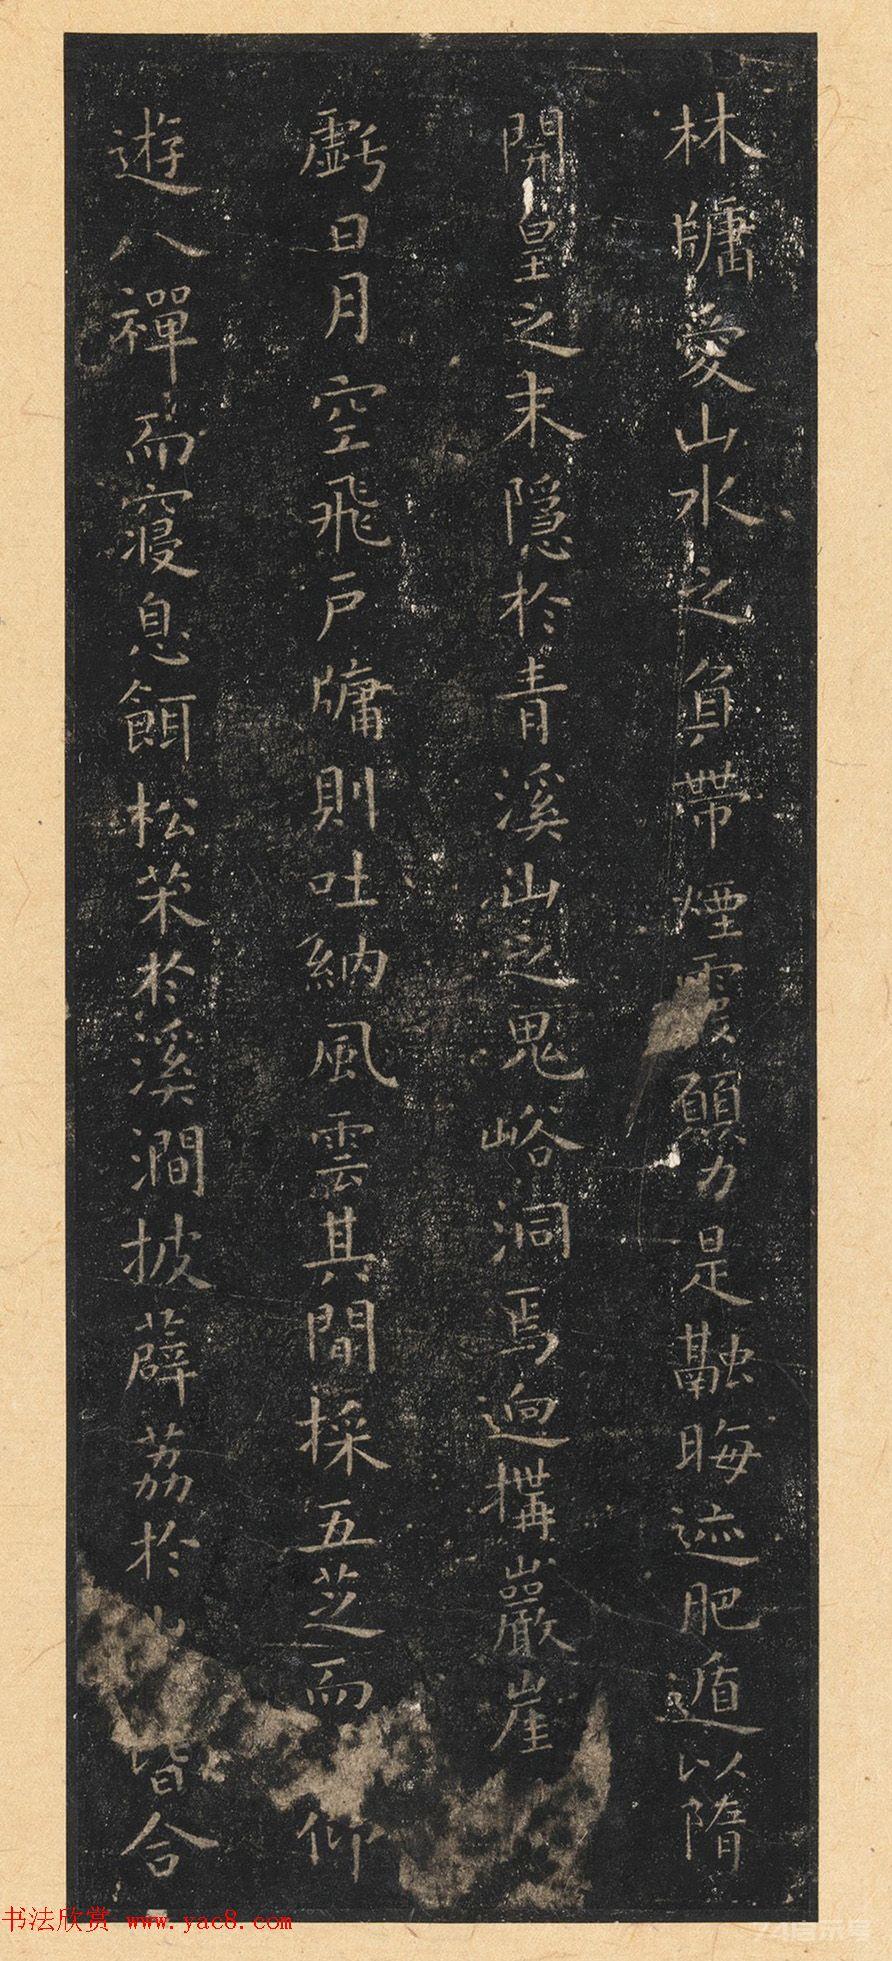 林牖愛山水之負帶煙霞願力是融晦迹肥遁以隋
開皇之末隱於青溪山之鬼峪洞焉逈構巖崖
虧日月空飛戶牖則吐納風雲其間採五芝而仰
遊八禪而寢息餌松朮於溪澗披薜荔於山皆合
书法欣赏 www.yac8.com